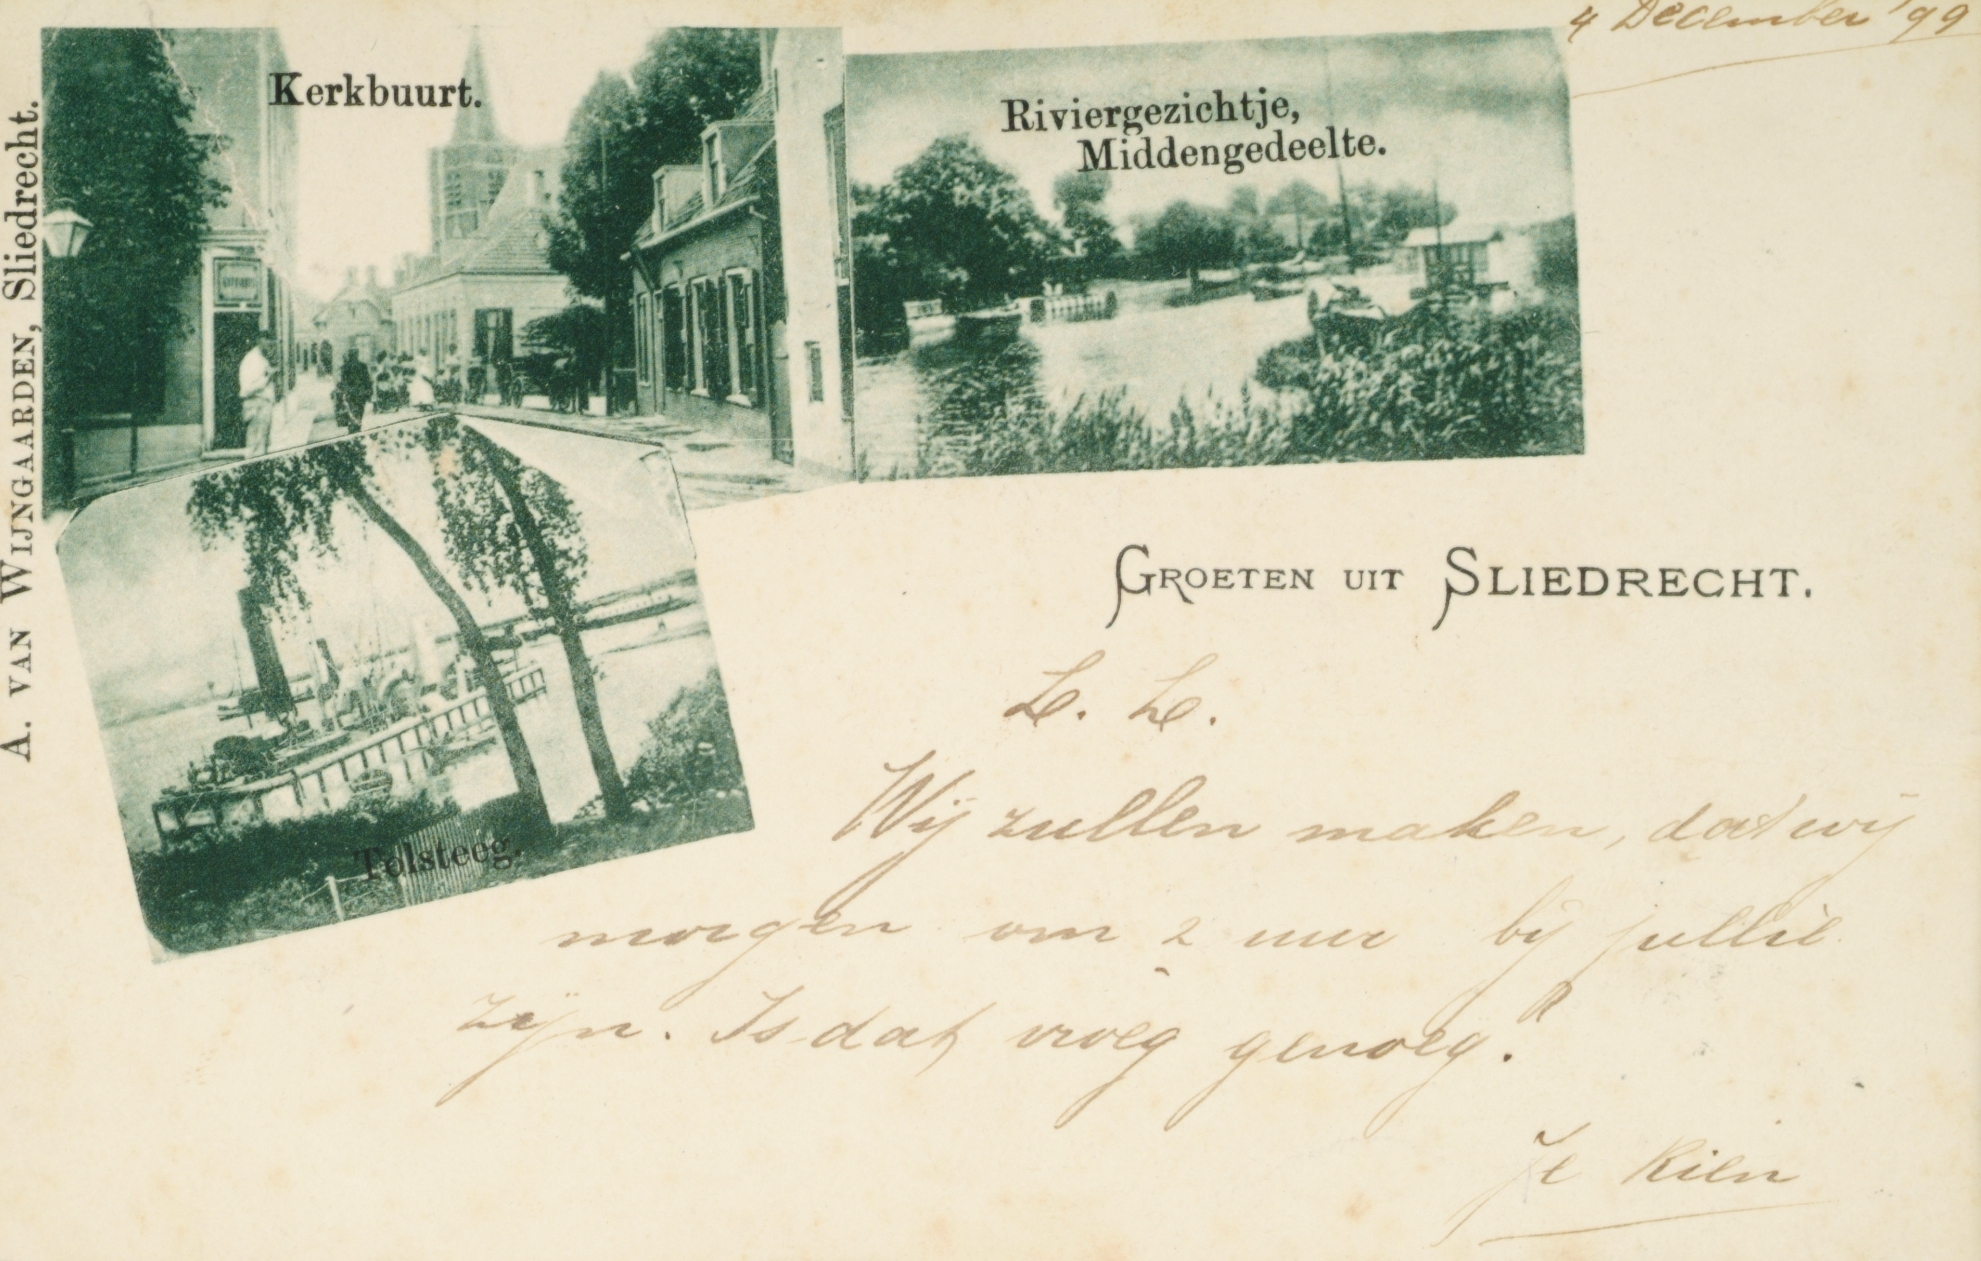 4 December '99
Kerkbuurt.
Riviergezichtje,
Middengedeelte.
A. van Wijngaarden, Sliedrecht.
Tolsteeg.
Groeten uit Sliedrecht.
L. L.
Wij zullen maken, dat wij
morgen om 2 uur bij jullie
zijn. Is dat vroeg genoeg?
Je Rien